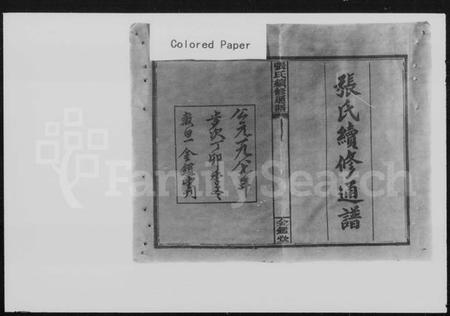 Colored Paper
張氏續修通譜
張氏續修通譜
金鑑堂
公元一九八七年
歲次丁卯
金鑑堂
FamilySearch